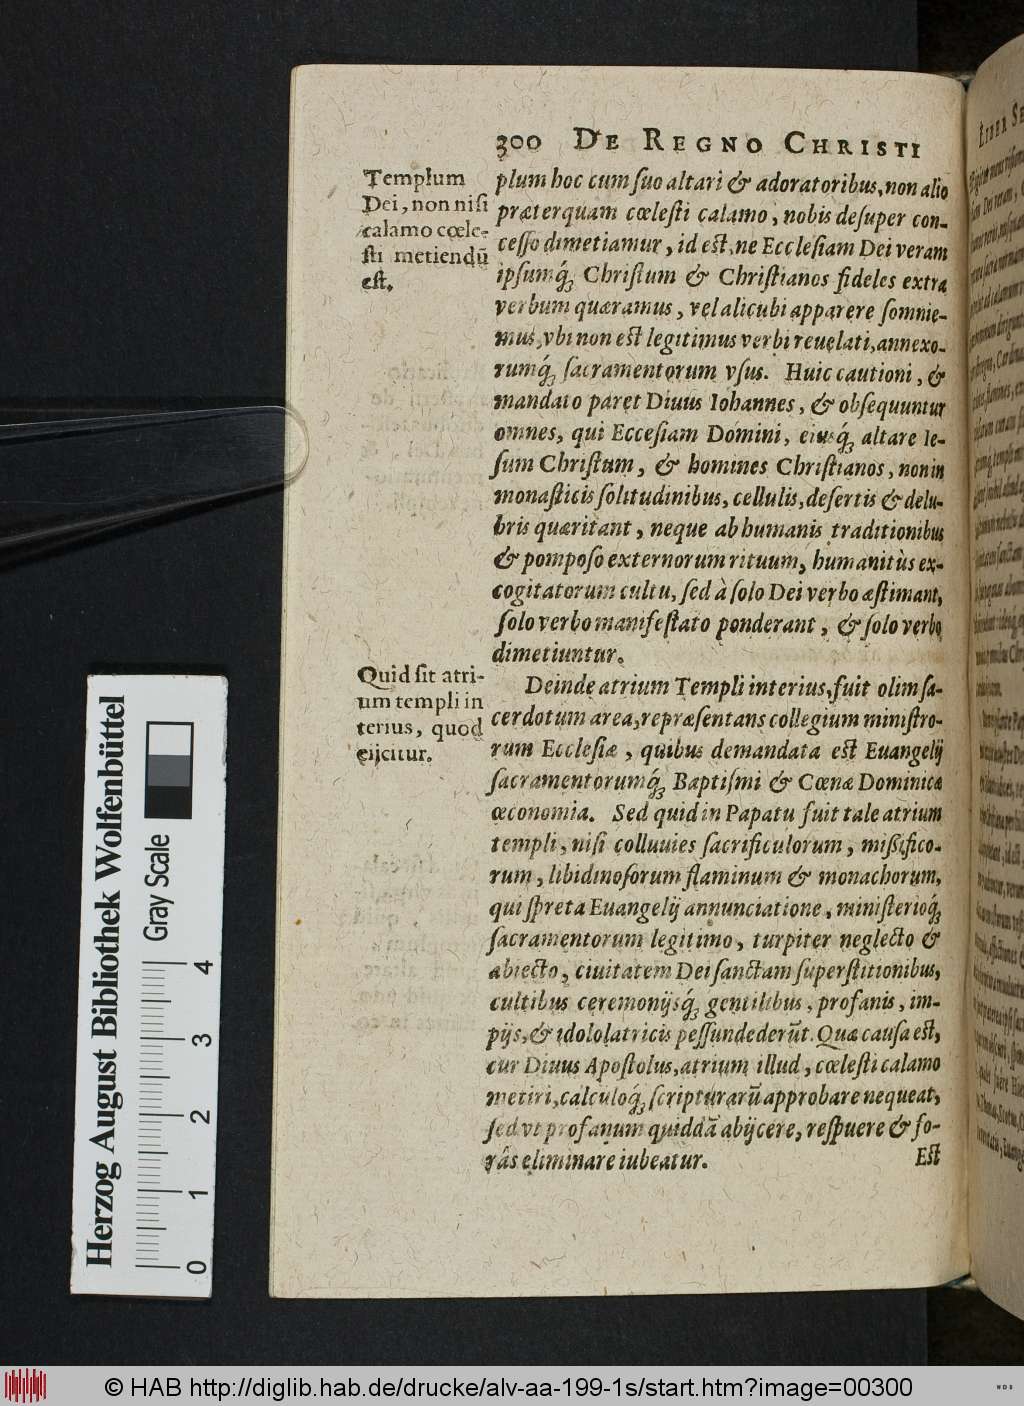 300 DE REGNO CHRISTI
Templum
Dei, non niſi
calamo cœle-
ſti metiendū
eſt.
plum hoc cum ſuo altari & adoratoribus, non alio
præterquam cœleſti calamo, nobis deſuper con-
ceſſo dimetiamur, id eſt, ne Eccleſiam Dei veram
ipſumq́ꝫ Chriſtum & Chriſtianos fideles extra
verbum quæramus, vel alicubi apparere ſomnie-
mus, vbi non eſt legitimus verbi reuelati, annexo-
rumq́ꝫ ſacramentorum vſus. Huic cautioni, &
mandato paret Diuus Iohannes, & obſequuntur
omnes, qui Ecceſiam Domini, eiusq́ꝫ altare Ie-
ſum Chriſtum, & homines Chriſtianos, non in
monaſticis ſolitudinibus, cellulis, deſertis & delu-
bris quæritant, neque ab humanis traditionibus
& pompoſo externorum rituum, humanitùs ex-
cogitatorum cultu, ſed à ſolo Dei verbo æſtimant,
ſolo verbo manifeſtato ponderant, & ſolo verbo
dimetiuntur.
Quid ſit atri-
um templi in
terius, quod
eijcitur.
Deinde atrium Templi interius, fuit olim ſa-
cerdotum area, repræſentans collegium miniſtro-
rum Eccleſiæ, quibus demandata eſt Euangelij
ſacramentorumq́ꝫ Baptiſmi & Cœnæ Dominicæ
œconomia. Sed quid in Papatu fuit tale atrium
templi, niſi colluuies ſacrificulorum, miſſifico-
rum, libidinoſorum flaminum & monachorum,
qui ſpreta Euangelij annunciatione, miniſterioq́ꝫ
ſacramentorum legitimo, turpiter neglecto &
abiecto, ciuitatem Dei ſanctam ſuperſtitionibus,
cultibus ceremonijsq́ꝫ gentilibus, profanis, im-
pijs, & idololatricis peſſundederūt. Quæ cauſa eſt,
cur Diuus Apoſtolus, atrium illud, cœleſti calamo
metiri, calculoq́ꝫ ſcripturarū approbare nequeat,
ſed vt profanum quiddā abijcere, reſpuere & fo-
râs eliminare iubeatur.
Eſt
Herzog August Bibliothek Wolfenbüttel
Gray Scale
0 1 2 3 4
© HAB http://diglib.hab.de/drucke/alv-aa-199-1s/start.htm?image=00300